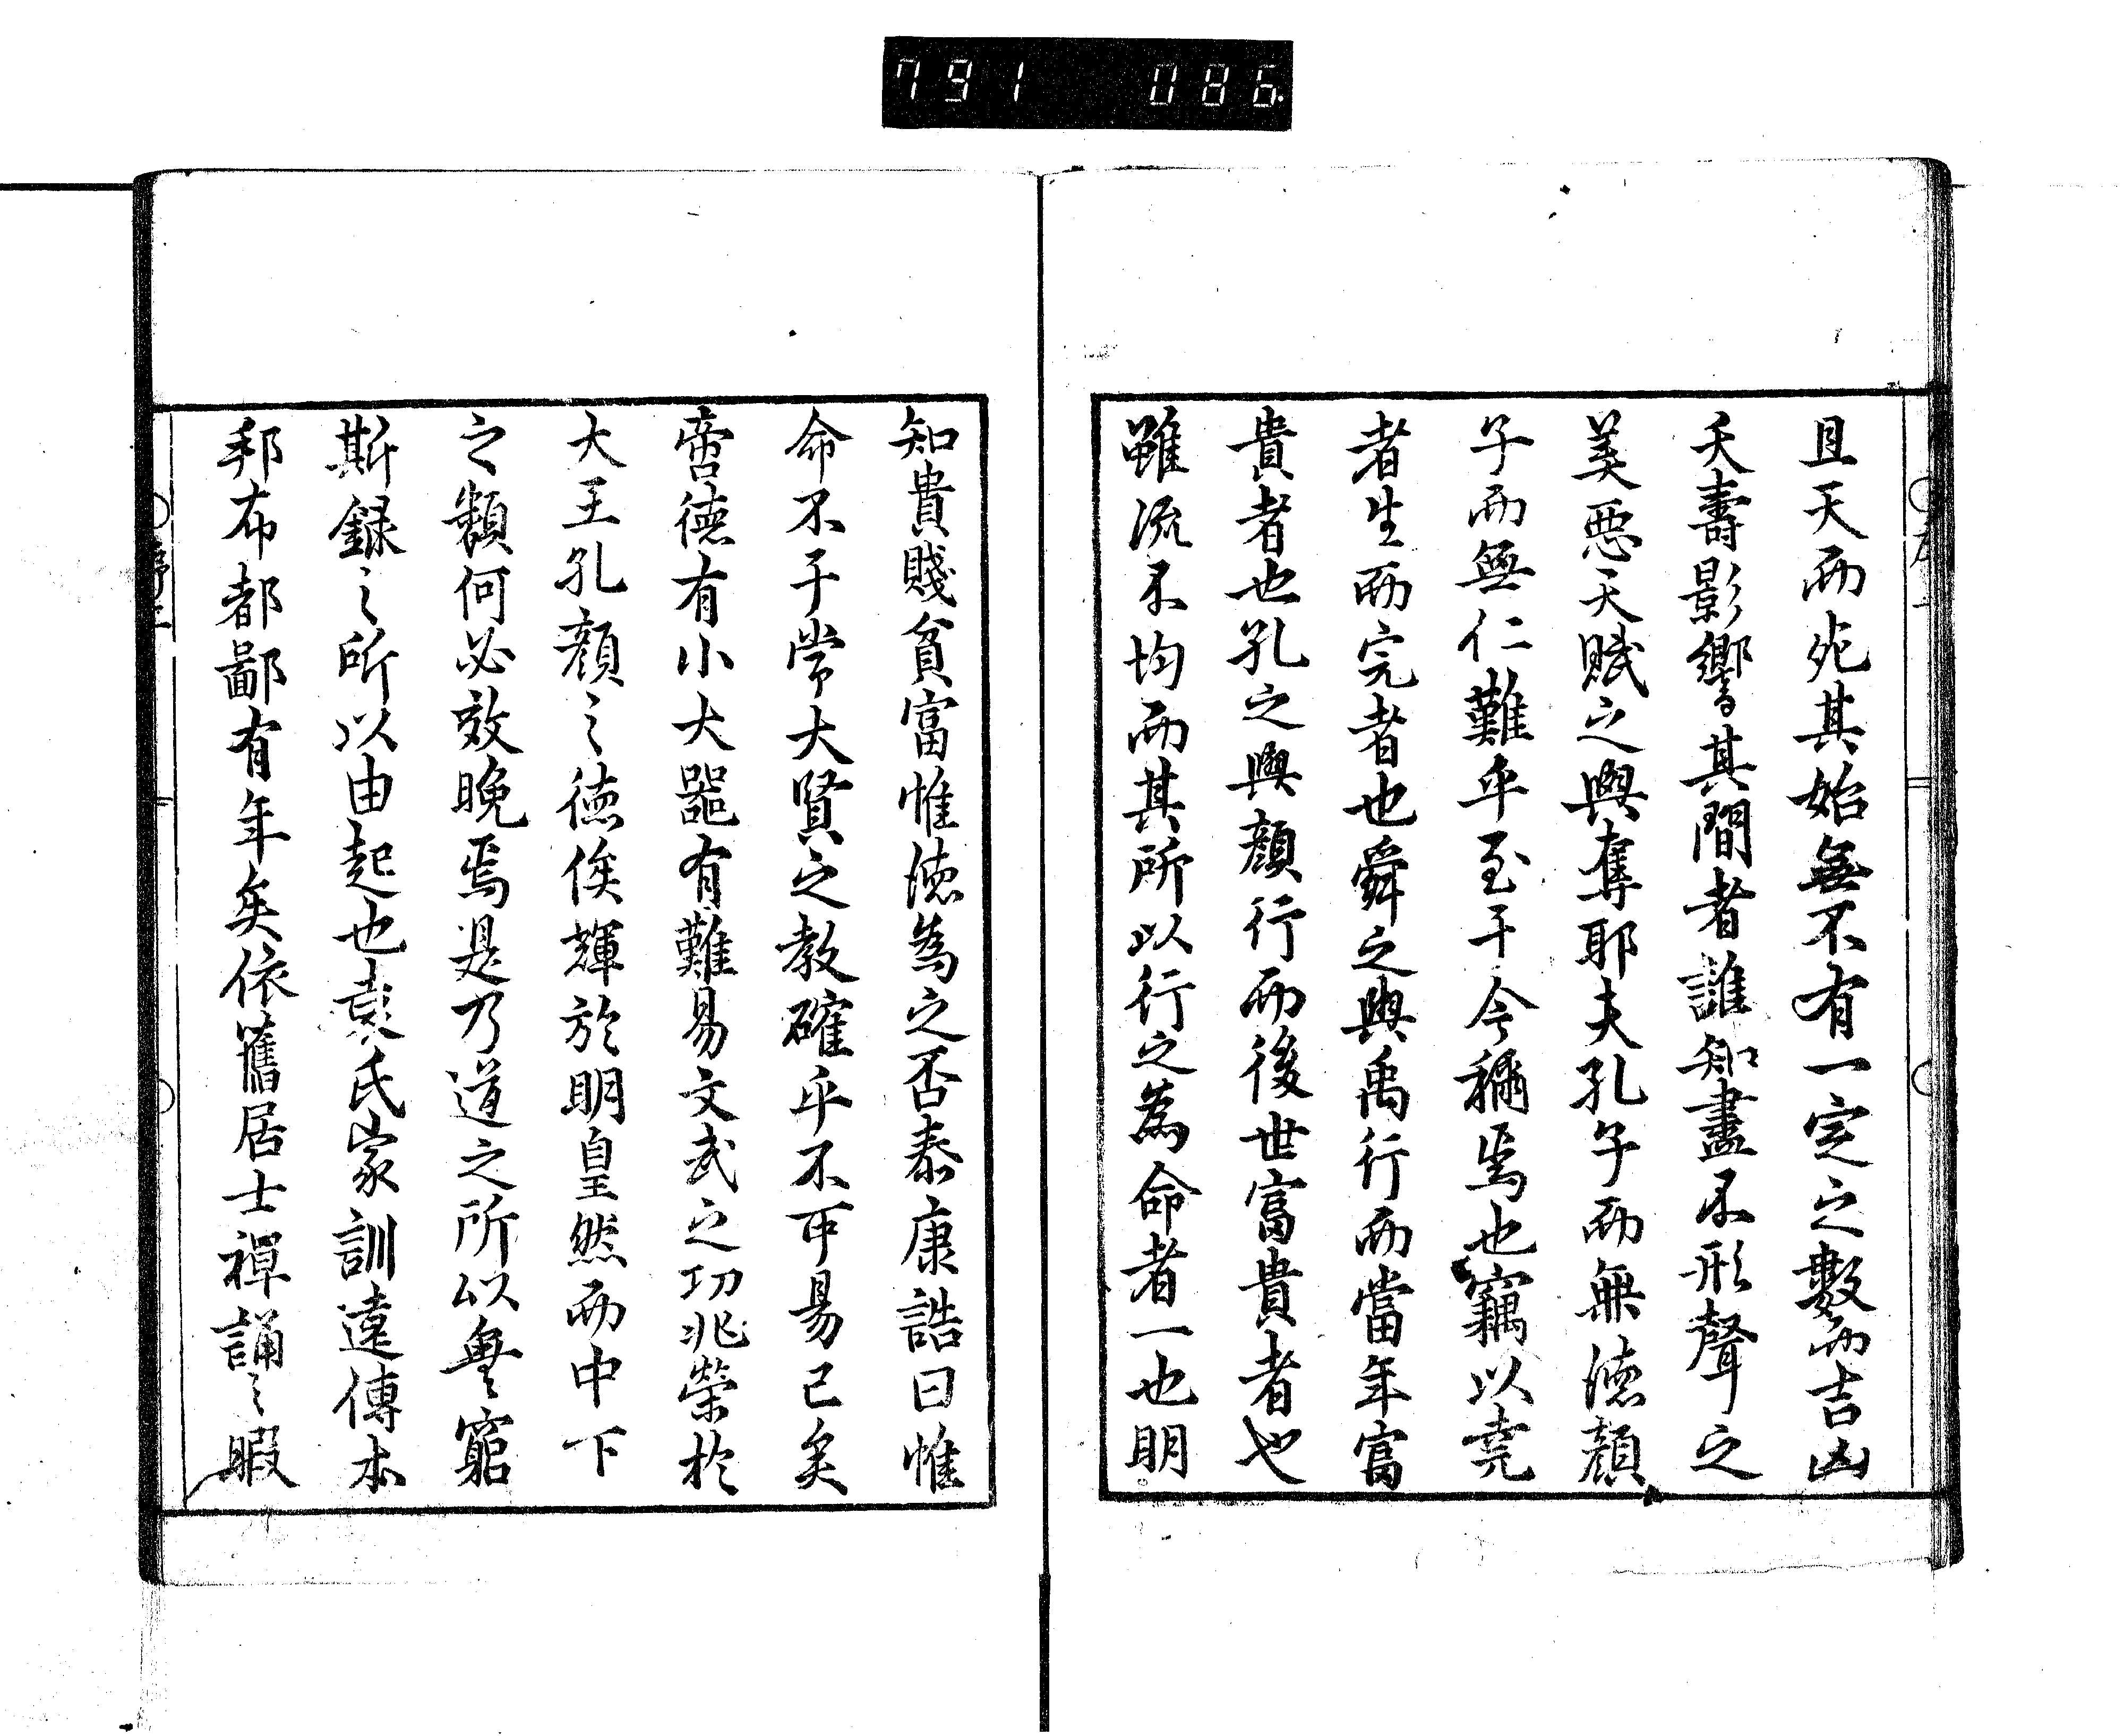 791 086
且天而死其始無不有一定之數而吉凶
夭壽影響其間者誰知盡不形聲之
美惡天賦之與奪耶夫孔子而無德顏
子而無仁難乎至于今稱焉也竊以堯
者生而完者也舜之與禹行而當年富
貴者也孔之與顏行而後世富貴者也
雖流不均而其所以行之為命者一也明
知貴賤貧富惟德為之否泰康誥曰惟
命不于常大賢之教確乎不可易已矣
啻德有小大器有難易文武之功兆榮於
大王孔顏之德俟輝於明皇然而中下
之類何必效晚焉是乃道之所以無窮
斯錄之所以由起也袁氏家訓遠傳本
邦布都鄙有年矣依舊居士禪誦之暇